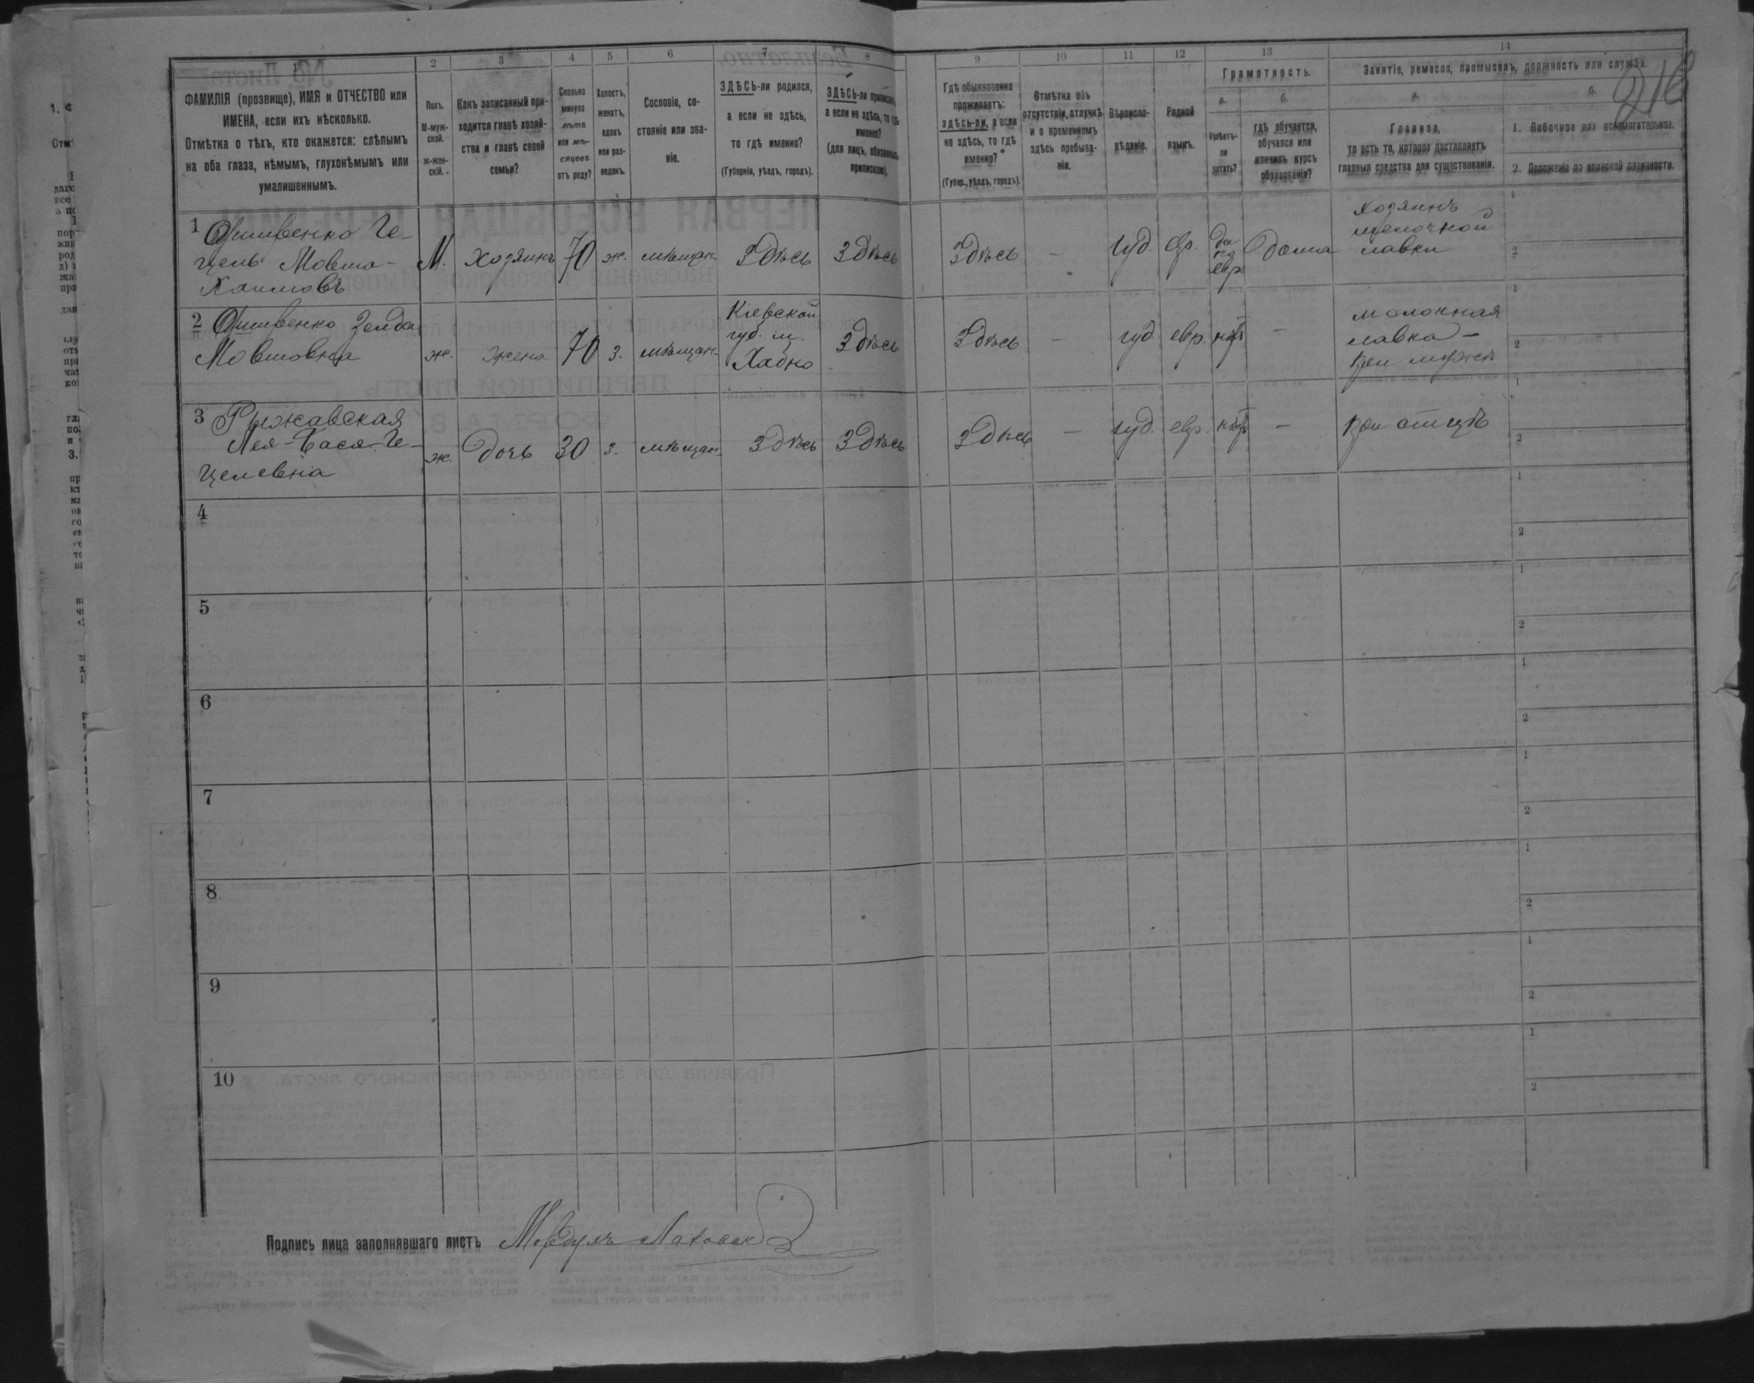 1 2 3 4 5 6 7 8 9 10 11 12 13 14
ФАМИЛІЯ (прозвище), ИМЯ и ОТЧЕСТВО или
ИМЕНА, если ихъ нѣсколько.
Отмѣтка о тѣхъ, кто окажется: слѣпымъ
на оба глаза, нѣмымъ, глухонѣмымъ или
умалишеннымъ.
Полъ.
М-муж-
ской.
Ж-жен-
скій.
Какъ записанный при-
ходится главѣ хозяй-
ства и главѣ своей
семьи?
Сколько
минуло
лѣтъ
или мѣ-
сяцевъ
отъ роду?
Холостъ,
женатъ,
вдовъ
или раз-
веденъ.
Сословіе, со-
стояніе или зва-
ніе.
ЗДѢСЬ-ли родился,
а если не здѣсь,
то гдѣ именно?
(Губернія, уѣздъ, городъ).
ЗДѢСЬ-ли приписанъ,
а если не здѣсь, то гдѣ
именно?
(для лицъ, обязанныхъ
припискою).
Гдѣ обыкновенно
проживаетъ:
здѣсь-ли, а если
не здѣсь, то гдѣ
именно?
(Губер., уѣздъ, городъ).
Отмѣтка объ
отсутствіи, отлучкѣ
и о временномъ
здѣсь пребыва-
ніи.
Вѣроиспо-
вѣданіе.
Родной
языкъ.
Грамотность.
а.
Умѣетъ-
ли
читать?
б.
гдѣ обучается,
обучался или
кончилъ курсъ
образованія?
Занятіе, ремесло, промыселъ, должность или служба.
а.
Главное,
то есть то, которое доставляетъ
главныя средства для существованія.
б.
1. Побочное или вспомогательное.
2. Положеніе по воинской повинности.
1
Ге-
цель Мовша-
Хаимовъ
М. хозяинъ 70 ж. мѣщан. Здѣсь Здѣсь Здѣсь - іуд. евр. да
евр дома
хозяинъ
мелочной
лавки
2
Зелда
Мовшовна
ж. жена 70 з. мѣщан.
Кіевской
губ. м.
Хабно
Здѣсь Здѣсь - іуд евр. нѣт -
молочная
лавка -
при мужѣ
3 Рыжавская
Лея-Бася-Ге-
целевна
ж. дочь 30 з. мѣщан. Здѣсь Здѣсь Здѣсь - іуд. евр. нѣт - при отцѣ
4
5
6
7
8
9
10
Подпись лица заполнявшаго листъ